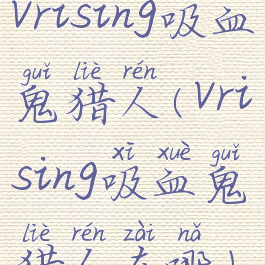 Vrising吸血
guǐ liè rén
鬼猎人(Vri
xī xuè guǐ
sing吸血鬼
liè rén zài nǎ
猎人在哪)